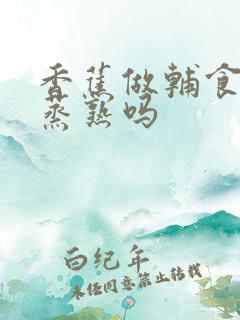 香蕉做辅食
蒸熟吗
白纪年
未经同意禁止转载